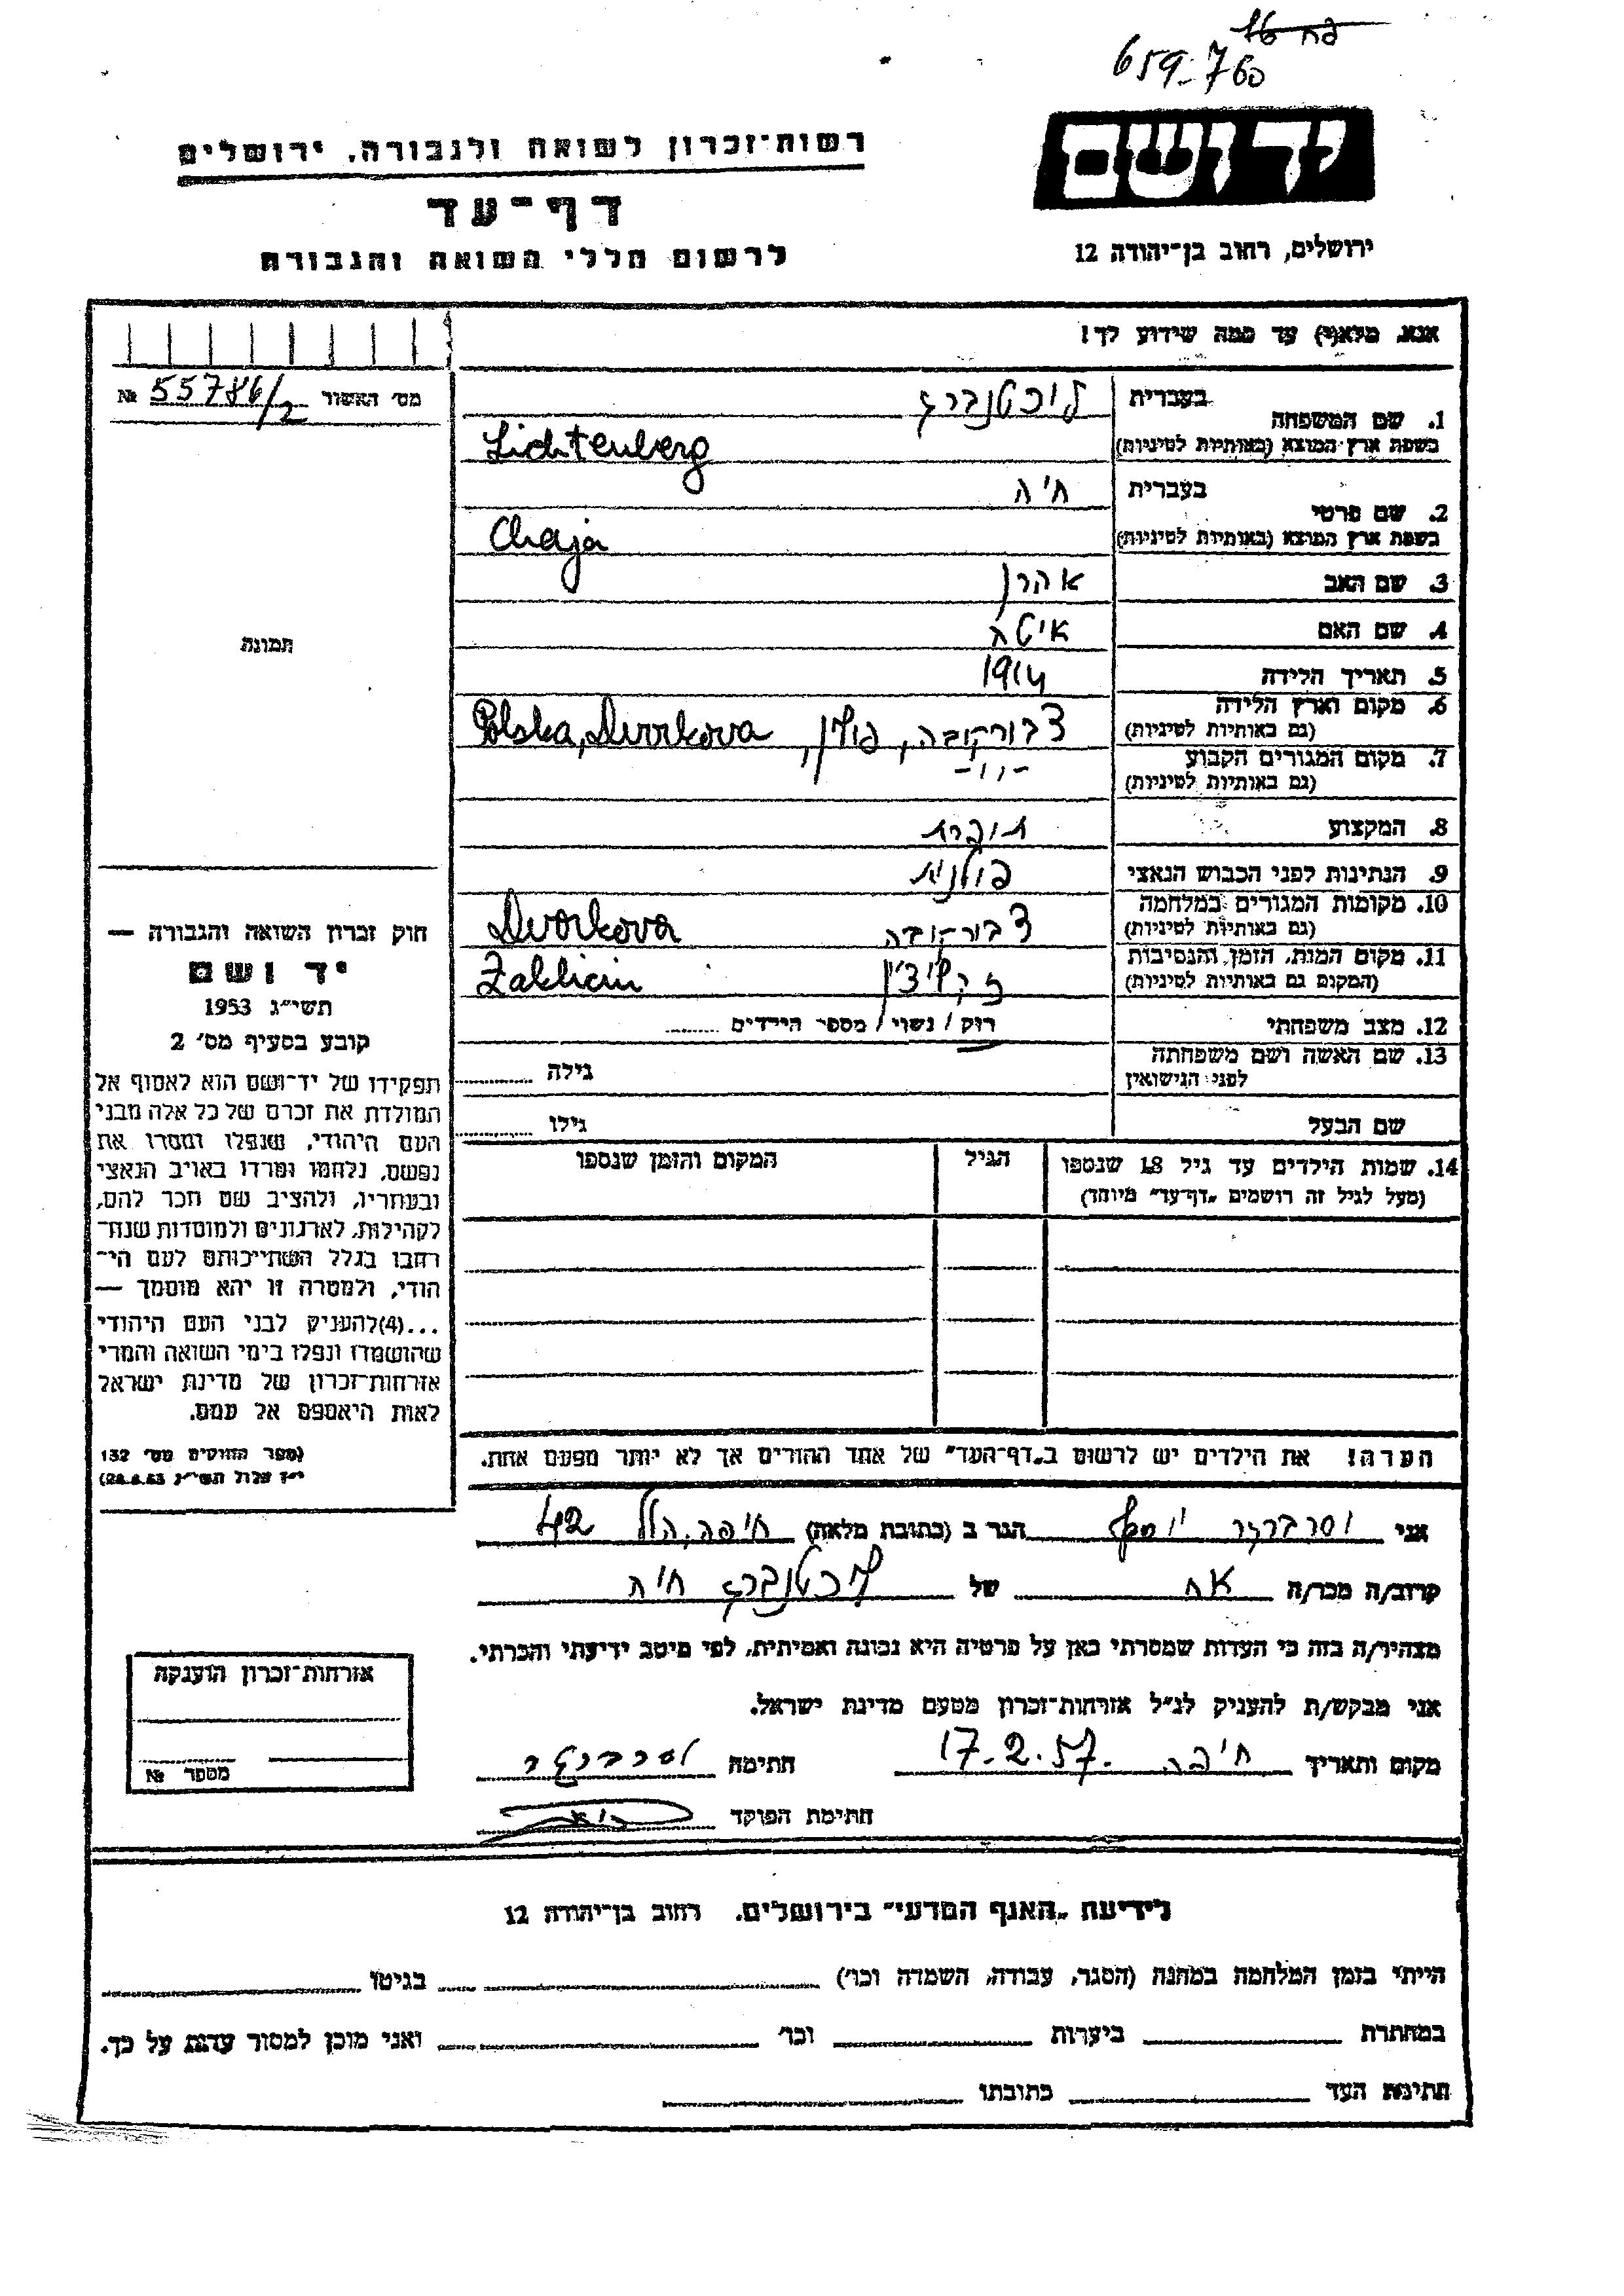 פח 16
659-760
יד ושם
ירושלים, רחוב בן־יהודה 12
רשות־זכרון לשואה ולגבורה, ירושלים
דף־עד
לרשום חללי השואה והגבורה
אנא, מלא(י) עד כמה שידוע לך!
מס׳ האשור № 55786/2
תמונה
1. שם המשפחה בעברית ליכטנברג
בשפת ארץ המוצא (באותיות לטיניות) Lichtenberg
2. שם פרטי בעברית חיה
בשפת ארץ המוצא (באותיות לטיניות) Chaja
3. שם האב אהרן
4. שם האם איטה
5. תאריך הלידה 1914
6. מקום וארץ הלידה (גם באותיות לטיניות) דבורקובה, פולין, Polska, Dvorkova
7. מקום המגורים הקבוע (גם באותיות לטיניות) -"-
8. המקצוע תופרת
9. הנתינות לפני הכבוש הנאצי פולנית
10. מקומות המגורים במלחמה (גם באותיות לטיניות) דבורקובה Dvorkova
11. מקום המות, הזמן והנסיבות (המקום גם באותיות לטיניות) זקליצ׳ין Zakliciu
12. מצב משפחתי רווק / נשוי / מספר הילדים
13. שם האשה ושם משפחתה לפני הנישואין גילה
שם הבעל גילו
14. שמות הילדים עד גיל 18 שנספו (מעל לגיל זה רושמים „דף־עד״ מיוחד) הגיל המקום והזמן שנספו
הערה! את הילדים יש לרשום ב„דף־העד״ של אחד ההורים אך לא יותר מפעם אחת.
חוק זכרון השואה והגבורה —
יד ושם
תשי״ג 1953
קובע בסעיף מס׳ 2
תפקידו של יד־ושם הוא לאסוף אל
המולדת את זכרם של כל אלה מבני
העם היהודי, שנפלו ומסרו את
נפשם, נלחמו ומרדו באויב הנאצי
ובעוזריו, ולהציב שם וזכר להם,
לקהילות, לארגונים ולמוסדות שנח־
רבו בגלל השתייכותם לעם הי־
הודי, ולמטרה זו יהא מוסמך —
...(4) להעניק לבני העם היהודי
שהושמדו ונפלו בימי השואה והמרי
אזרחות־זכרון של מדינת ישראל
לאות היאספם אל עמם.
(ספר החוקים מס׳ 132
י״ז אלול תשי״ג 28.8.53)
אני וסרברגר יוסף הגר ב (כתובת מלאה) חיפה, הלל 42
קרוב/ה מכר/ה אח של ליכטנברג חיה
מצהיר/ה בזה כי העדות שמסרתי כאן על פרטיה היא נכונה ואמיתית, לפי מיטב ידיעתי והכרתי.
אני מבקש/ת להעניק לנ״ל אזרחות־זכרון מטעם מדינת ישראל.
מקום ותאריך חיפה 17.2.57 חתימה וסרברגר
חתימת הפוקד
אזרחות־זכרון הוענקה
מספר №
לידיעת „האגף המדעי״ בירושלים, רחוב בן־יהודה 12
הייתי בזמן המלחמה במחנה (הסגר, עבודה, השמדה וכו׳) בגיטו
במחתרת ביערות וכו׳ ואני מוכן למסור עדות על כך.
חתימת העד כתובתו